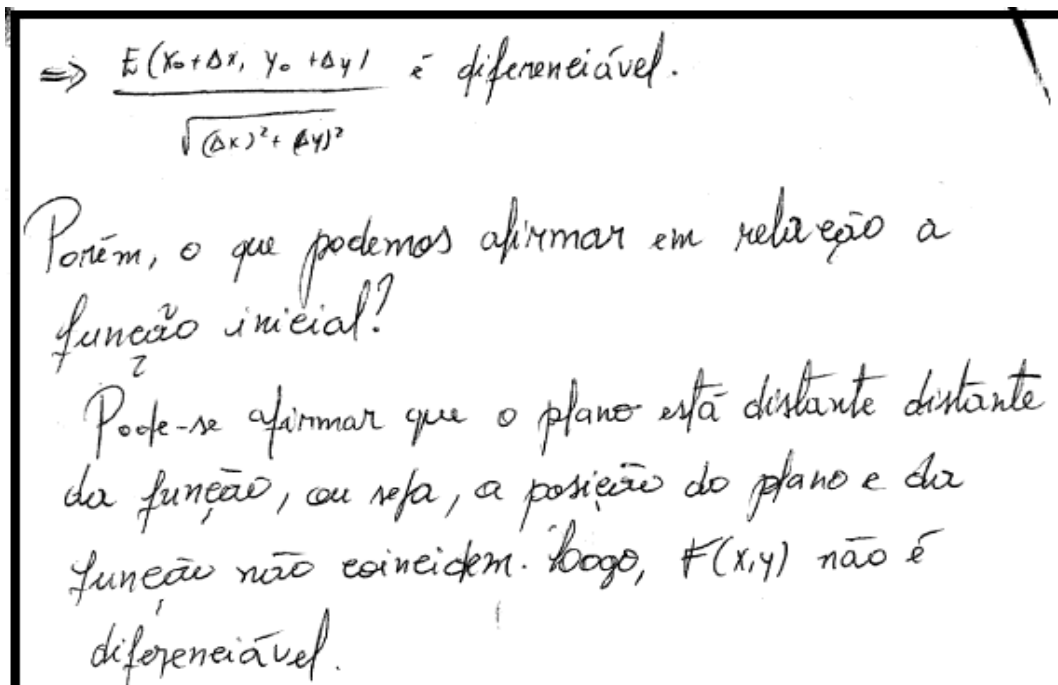 ⇒ E(x₀+Δx, y₀+Δy) é diferenciável.
√(Δx)²+(Δy)²
Porém, o que podemos afirmar em relação a
função inicial?
Pode-se afirmar que o plano está distante distante
da função, ou seja, a posição do plano e da
função não coincidem. Logo, F(x,y) não é
diferenciável.